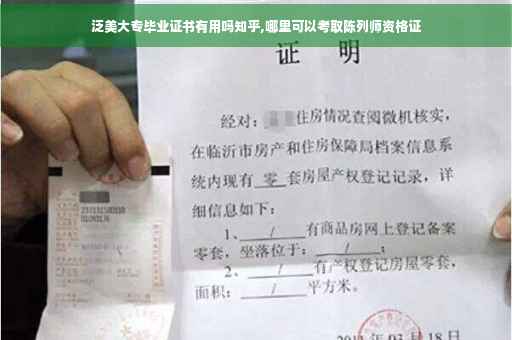 泛美大专毕业证书有用吗知乎,哪里可以考取陈列师资格证
证 明
经对: 住房情况查阅微机核实,
在临沂市房产和住房保障局档案信息系
统内现有 零 套房屋产权登记记录,详
细信息如下:
1、 / 有商品房网上登记备案
零套,坐落位于: / ;
2、 / 有产权登记房屋零套,
面积: / 平方米。
月18日